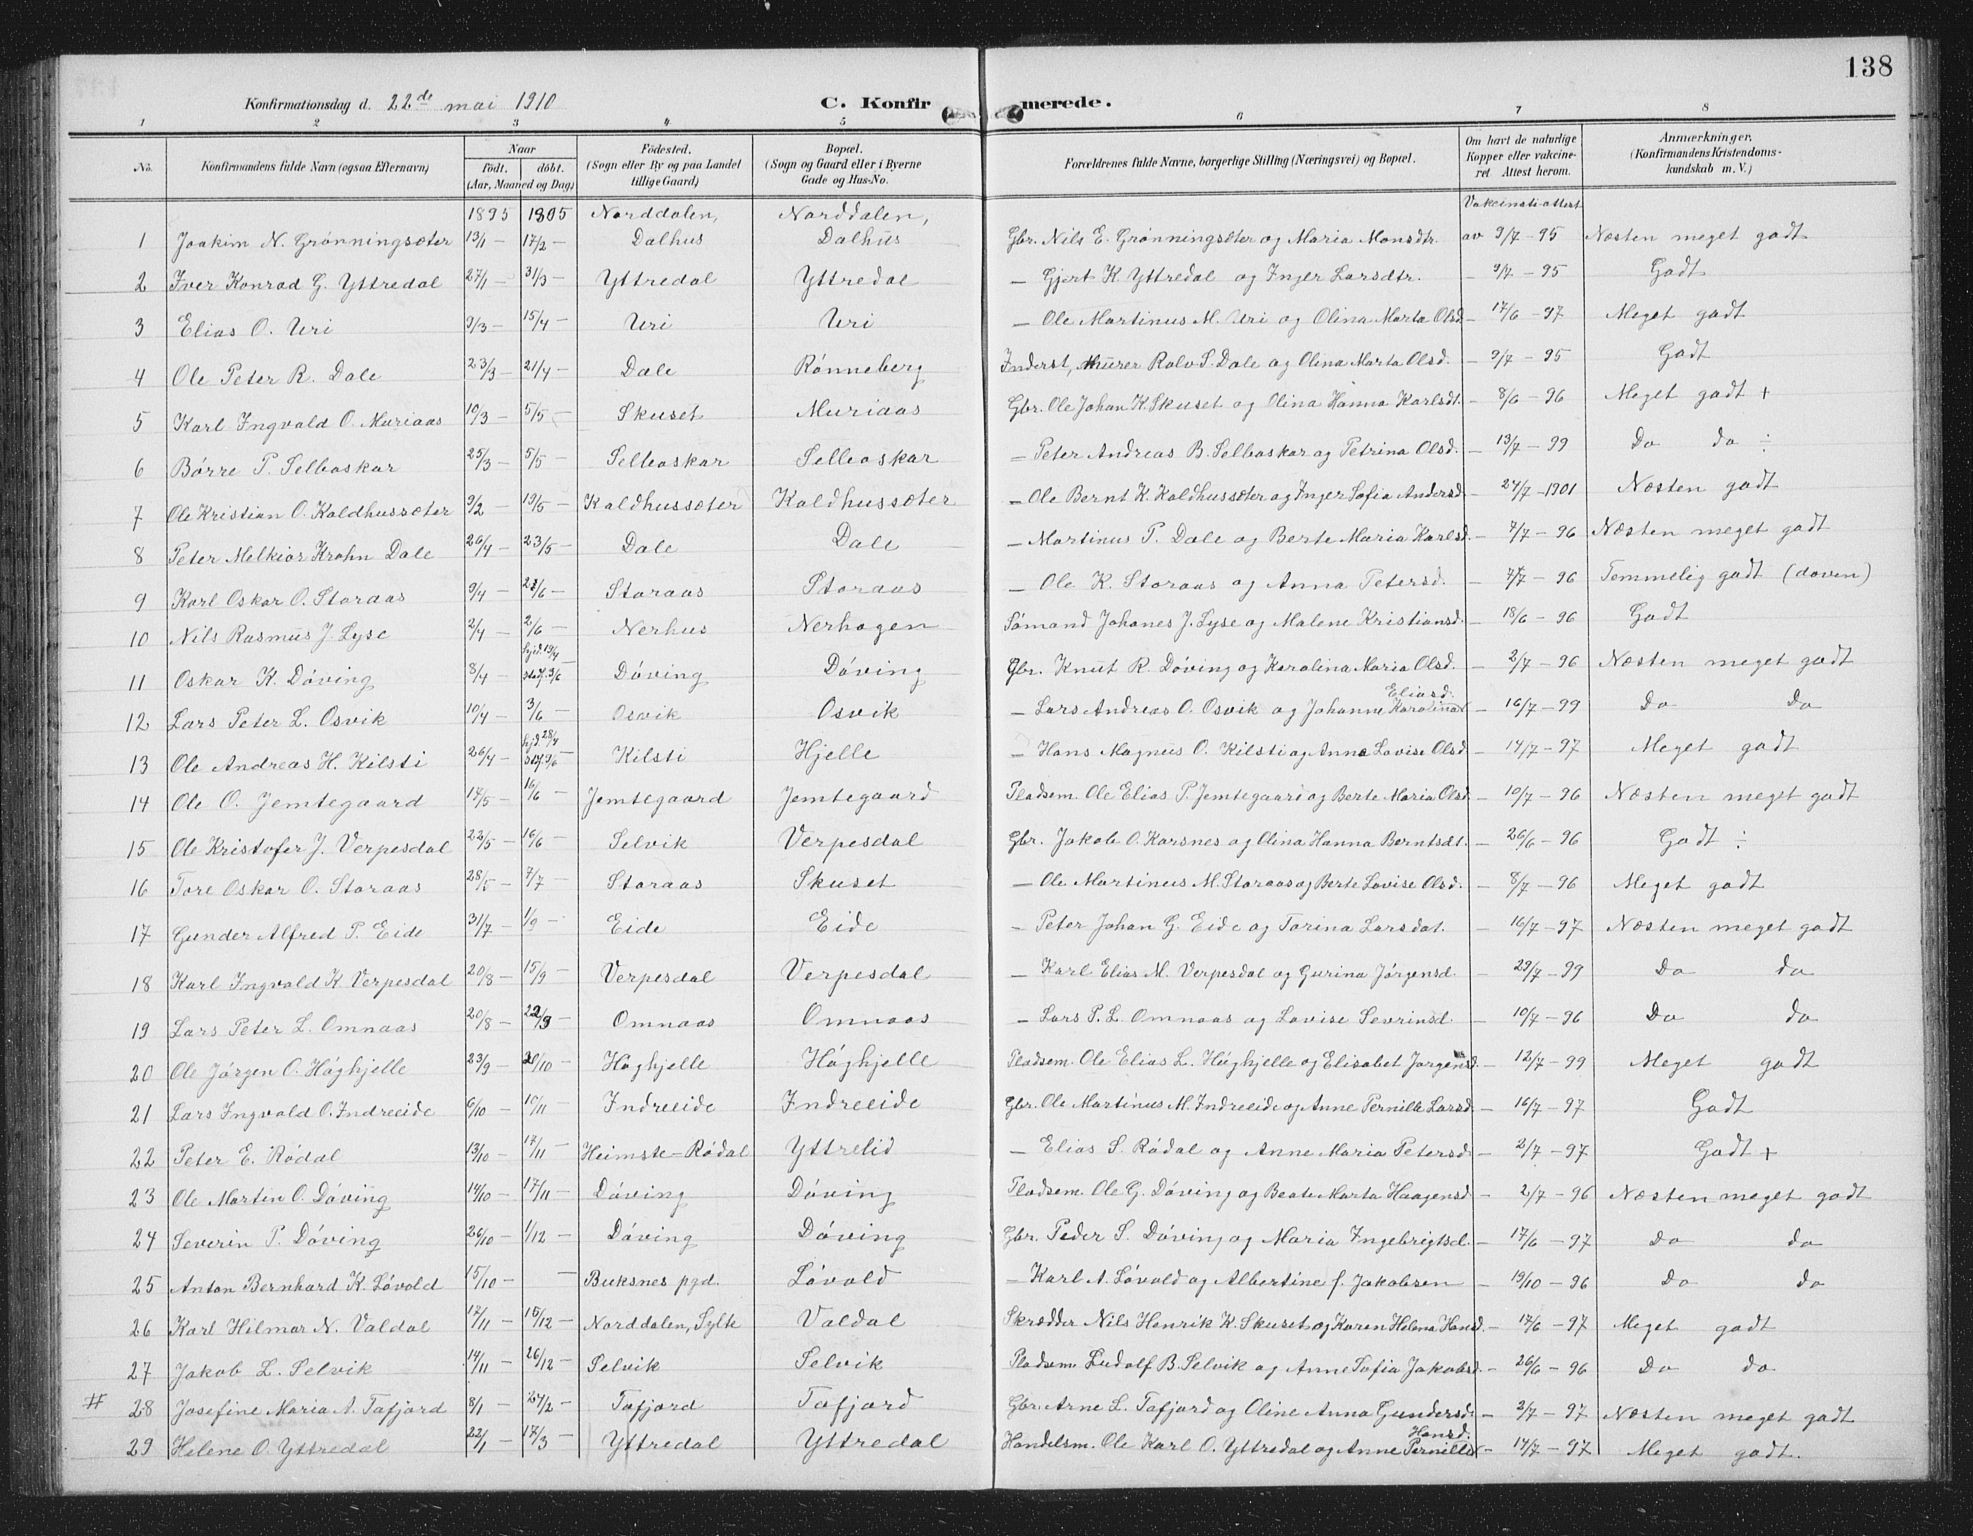 138
Konfirmationsdag d. 22de mai 1910 C. Konfirmerede.
1 2 3 4 5 6 7 8
No. Konfirmandens fulde Navn (ogsaa Efternavn) Naar født. døbt. (Aar, Maaned og Dag) Fødested. (Sogn eller By og paa Landet tillige Gaard) Bopæl. (Sogn og Gaard eller i Byerne Gade og Hus-No. Forældrenes fulde Navne, borgerlige Stilling (Næringsvei) og Bopæl. Om havt de naturlige Kopper eller vakcineret Attest herom. Anmærkninger. (Konfirmandens Kristendomskundskab m. V.)
1895 1895 Norddalen, Norddalen, Vakcinati-attest
1 Joakim N. Grönningsæter 13/1 — 17/2 — Dalhus Dalhus Gbr. Nils E. Grönningsæter og Maria Monsdtr. av 9/7 - 95 Næsten meget godt
2 Iver Konrad G. Yttredal 27/1 — 31/3 — Yttredal Yttredal — Gjert K. Yttredal og Inger Larsdtr. — 9/7 - 95 Godt
3 Elias O. Uri 9/3 — 15/4 — Uri Uri — Ole Martinus M. Uri og Olina Marta Olsd — 17/6 - 97 Meget godt
4 Ole Peter R. Dale 23/3 — 21/4 — Dale Rønneberg Inderst, Murer Rolv S. Dale og Olina Marta Olsd. — 9/7 - 95 Godt
5 Karl Ingvald O. Muriaas 10/3 — 5/5 — Skuset Muriaas Gbr. Ole Johan K. Skuset og Olina Hanna Karlsdt. — 8/6 - 96 Meget godt +
6 Børre P. Selboskar 25/3 — 5/5 — Selboskar Selboskar — Peter Andreas B. Selboskar og Petrina Olsd. — 13/7 - 99 Do do ÷
7 Ole Kristian O. Kaldhussæter 9/2 — 19/5 — Kaldhussæter Kaldhussæter — Ole Bernt K. Kaldhussæter og Inger Sofia Andersd — 24/7 - 1901 Næsten godt
8 Peter Melkior Krohn Dale 26/4 — 23/5 — Dale Dale — Martinus P. Dale og Berte Maria Karlsd. — 7/7 - 96 Næsten meget godt
9 Karl Oskar O. Storaas 9/4 — /6 — Storaas Storaas — Ole K. Storaas og Anna Petersd. — 7/7 - 96 Temmelig godt (doven)
10 Nils Rasmus J. Lyse 2/4 — 2/6 — Nerhus Nerhagen Sömand Johanes J. Lyse og Malene Kristiansd. — 18/6 - 96 Godt
11 Oskar K. Döving 8/4 — hjd. 19/4 stadf. 3/6 Döving Döving Gbr. Knut R. Döving og Karolina Maria Olsd. — 2/7 - 96 Næsten meget godt
12 Lars Peter L. Osvik 10/4 — 3/6 — Osvik Osvik — Lars Andreas O. Osvik og Johanne Karolina Eliasd. — 16/7 - 99 Do Do
13 Ole Andreas H. Kilsti 26/4 — hjd. 28/4 9/6 — Kilsti Hjelle — Hans Magnus O. Kilsti og Anne Lovise Olsd — 14/7 - 97 Meget godt
14 Ole O. Jemtegaard 17/5 — 16/6 — Jemtegaard Jemtegaard Pladsem. Ole Elias P. Jemtegaard og Berte Maria Olsd. — 10/7 - 96 Næsten meget godt
15 Ole Kristofer J. Verpesdal 22/5 — 16/6 — Selvik Verpesdal Gbr. Jakob O. Karsnes og Olina Hanna Berntsdt. — 26/6 - 96 Godt ÷
16 Tore Oskar O. Storaas 28/5 — 7/7 — Storaas Skuset — Ole Martinus M. Storaas og Berte Lovise Olsd. — 8/7 - 96 Meget godt
17 Gunder Alfred P. Eide 31/7 — 1/9 — Eide Eide — Peter Johan G. Eide og Torina Larsdat. — 16/7 - 97 Næsten meget godt
18 Karl Ingvald K. Verpesdal 20/8 — 15/9 — Verpesdal Verpesdal — Karl Elias M. Verpesdal og Gurina Jörgensd. — 29/7 - 99 Do do
19 Lars Peter L. Omnaas 20/8 — 22/9 — Omnaas Omnaas — Lars P. L. Omnaas og Lovise Sevrinsd. — 10/7 - 96 Do do
20 Ole Jörgen O. Höghjelle 23/9 — 20/10 — Höghjelle Höghjelle Pladsem. Ole Elias L. Höghjelle og Elisabet Jørgensd. — 12/7 - 99 Meget godt
21 Lars Ingvald O. Indreeide 6/10 — 10/11 — Indreeide Indreeide Gbr. Ole Martinus M. Indreeide og Anne Pernille Larsd. — 16/7 - 97 Godt
22 Peter E. Rödal 13/10 — 17/11 — Heimste-Rödal Yttrelid — Elias S. Rödal og Anne Maria Petersd. — 2/7 - 97 Godt +
23 Ole Martin O. Döving 14/10 — 17/11 — Döving Döving Pladsem. Ole G. Döving og Beate Marta Haagensd. — 2/7 - 96 Næsten meget godt
24 Severin P. Döving 26/10 — 1/12 — Döving Döving Gbr. Peder S. Döving og Maria Ingebrigtsd. — 17/6 - 97 Do do
25 Anton Bernhard K. Lövold 15/10 — — Buksnes pgd. Lövold — Karl A. Lövold og Albertine f. Jakobsen — 19/10 - 96 Do do
26 Karl Hilmar N. Valdal 17/11 — 15/12 — Norddalen, Sylte Valdal Skrædder Nils Henrik K. Skuset og Karen Helena Hansd. — 17/6 - 97 Meget godt
27 Jakob L. Selvik 14/11 — 26/12 — Selvik Selvik Pladsem. Ludolf B. Selvik og Anne Sofia Jakobsd. — 26/6 - 96 Do do
# 28 Josefine Maria A. Tafjord 8/1 — 24/2 — Tafjord Tafjord Gbr. Arne L. Tafjord og Oline Anna Gundersd. — 2/7 - 97 Næsten meget godt
29 Helene O. Yttredal 22/1 — 17/3 — Yttredal Yttredal Handelsm. Ole Karl O. Yttredal og Anne Pernille Hansd. — 14/7 - 97 Meget godt.